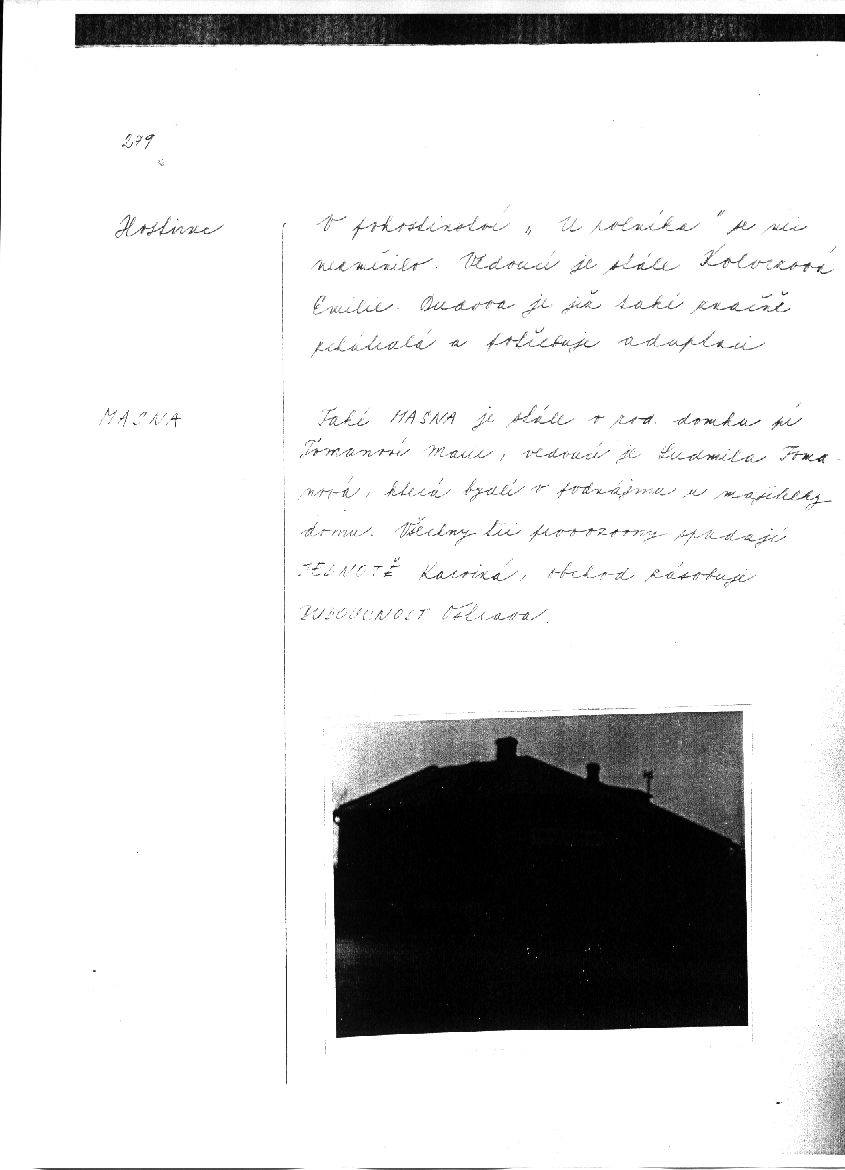 279
Hostinec
V pohostinství „ U rolníka " se nic
nezměnilo. Vedoucí je stále
Emilie. Budova je již také značně
zchátralá a potřebuje adaptaci
MASNA
Také MASNA je stále v rod. domku pí
Tomanové Marie, vedoucí je Ludmila Toma-
nová, která bydlí v podnájmu u majitelky
domu. Všechny tři provozovny spadají
JEDNOTĚ Karviná, obchod zásobuje
BUDOUCNOST Ostrava.